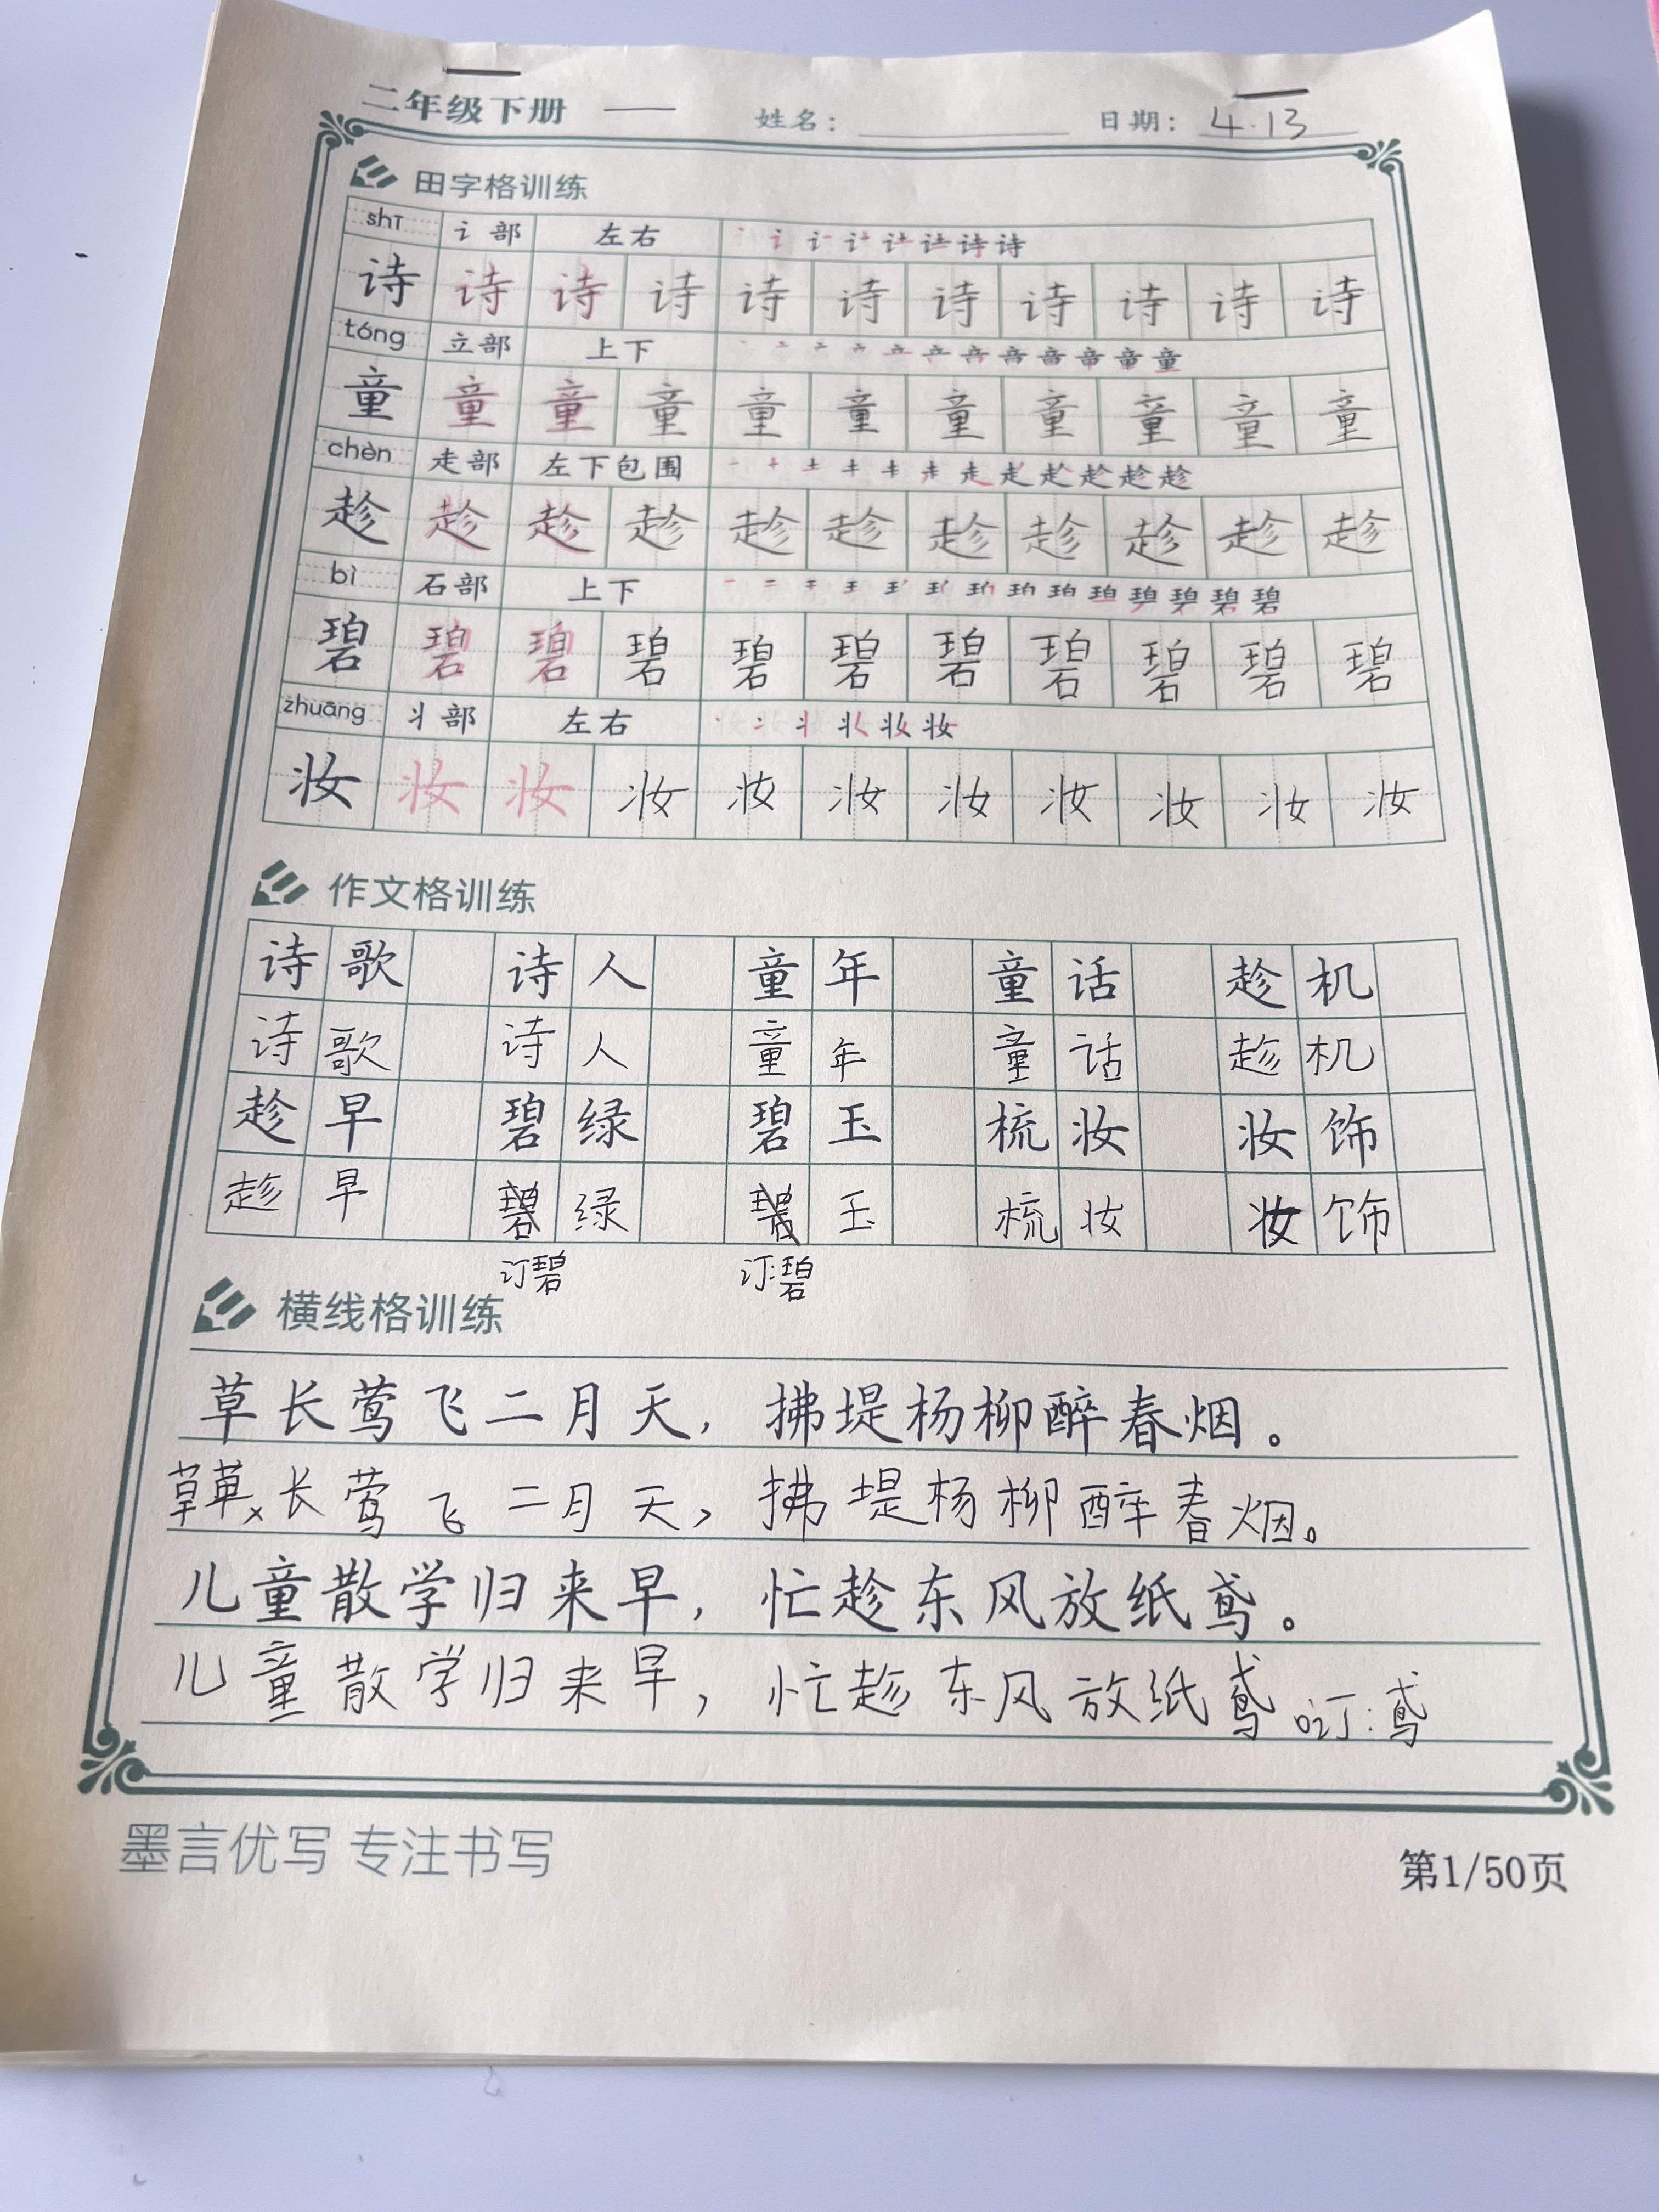 二年级下册 —— 姓名： 日期：4.13
田字格训练
shī 讠部 左右 诗诗
诗 诗 诗 诗 诗 诗 诗 诗 诗 诗 诗
tóng 立部 上下 童 童
童 童 童 童 童 童 童 童 童 童 童
chèn 走部 左下包围 走 趁 趁
趁 趁 趁 趁 趁 趁 趁 趁 趁 趁 趁
bì 石部 上下 碧 碧
碧 碧 碧 碧 碧 碧 碧 碧 碧 碧 碧
zhuāng 丬部 左右 妆 妆
妆 妆 妆 妆 妆 妆 妆 妆 妆 妆 妆
作文格训练
诗歌 诗人 童年 童话 趁机
诗歌 诗人 童年 童话 趁机
趁早 碧绿 碧玉 梳妆 妆饰
趁早 绿 玉 梳妆 妆饰
订碧 订:碧
横线格训练
草长莺飞二月天，拂堤杨柳醉春烟。
草 长莺飞二月天，拂堤杨柳醉春烟。
儿童散学归来早，忙趁东风放纸鸢。
儿童散学归来早，忙趁东风放纸鸢。订:鸢
墨言优写 专注书写
第1/50页